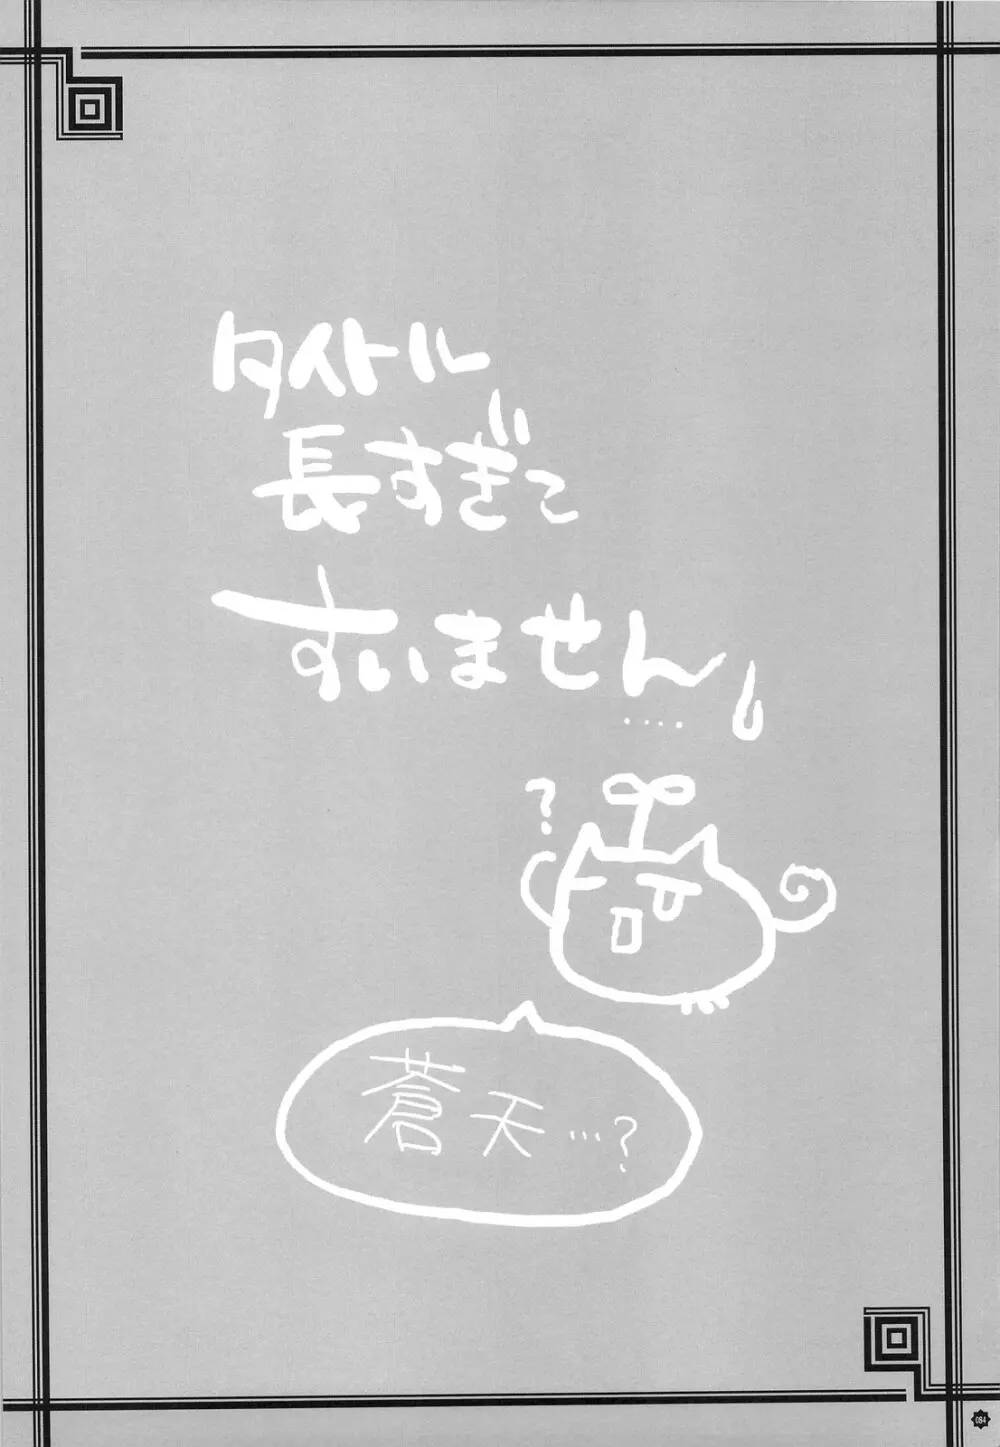 タイトル
長すぎて
すいません
....
?
蒼天…?
084